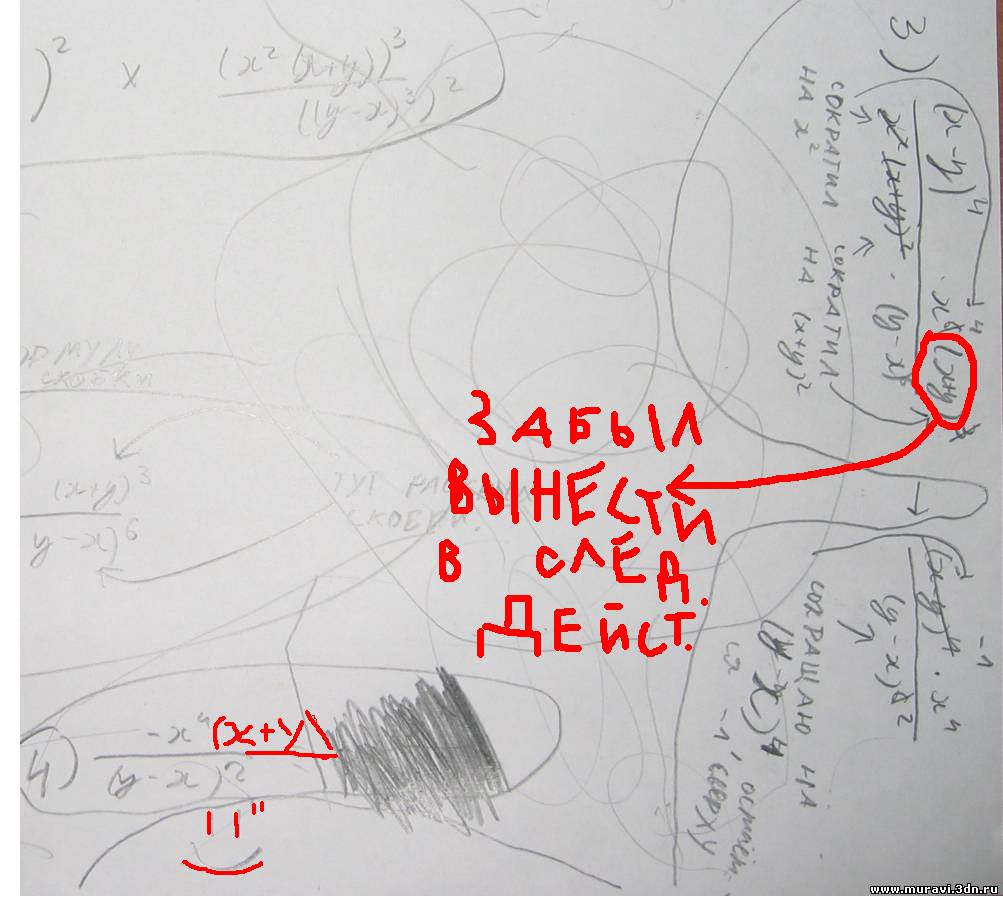 )² x (x² (x+y))³
((y-x)³)²
3) (x-y)⁴ · x⁶ (x+y)³
x² (x+y)² · (y-x)⁶
СОКРАТИЛ
НА x²
СОКРАТИЛ
НА (x+y)²
СКОБКИ
(x+y)³
y-x)⁶
ТУТ
СКОБКИ.
ЗАБЫЛ
ВЫНЕСТИ
В СЛЕД.
ДЕЙСТ.
(x-y)⁴ · x⁴
(y-x)⁶ ²
-1
СОКРАЩАЮ НА
(y-x)⁴
-1, СВЕРХУ
4) -x⁴ (x+y)
(y-x)²
www.muravi.3dn.ru